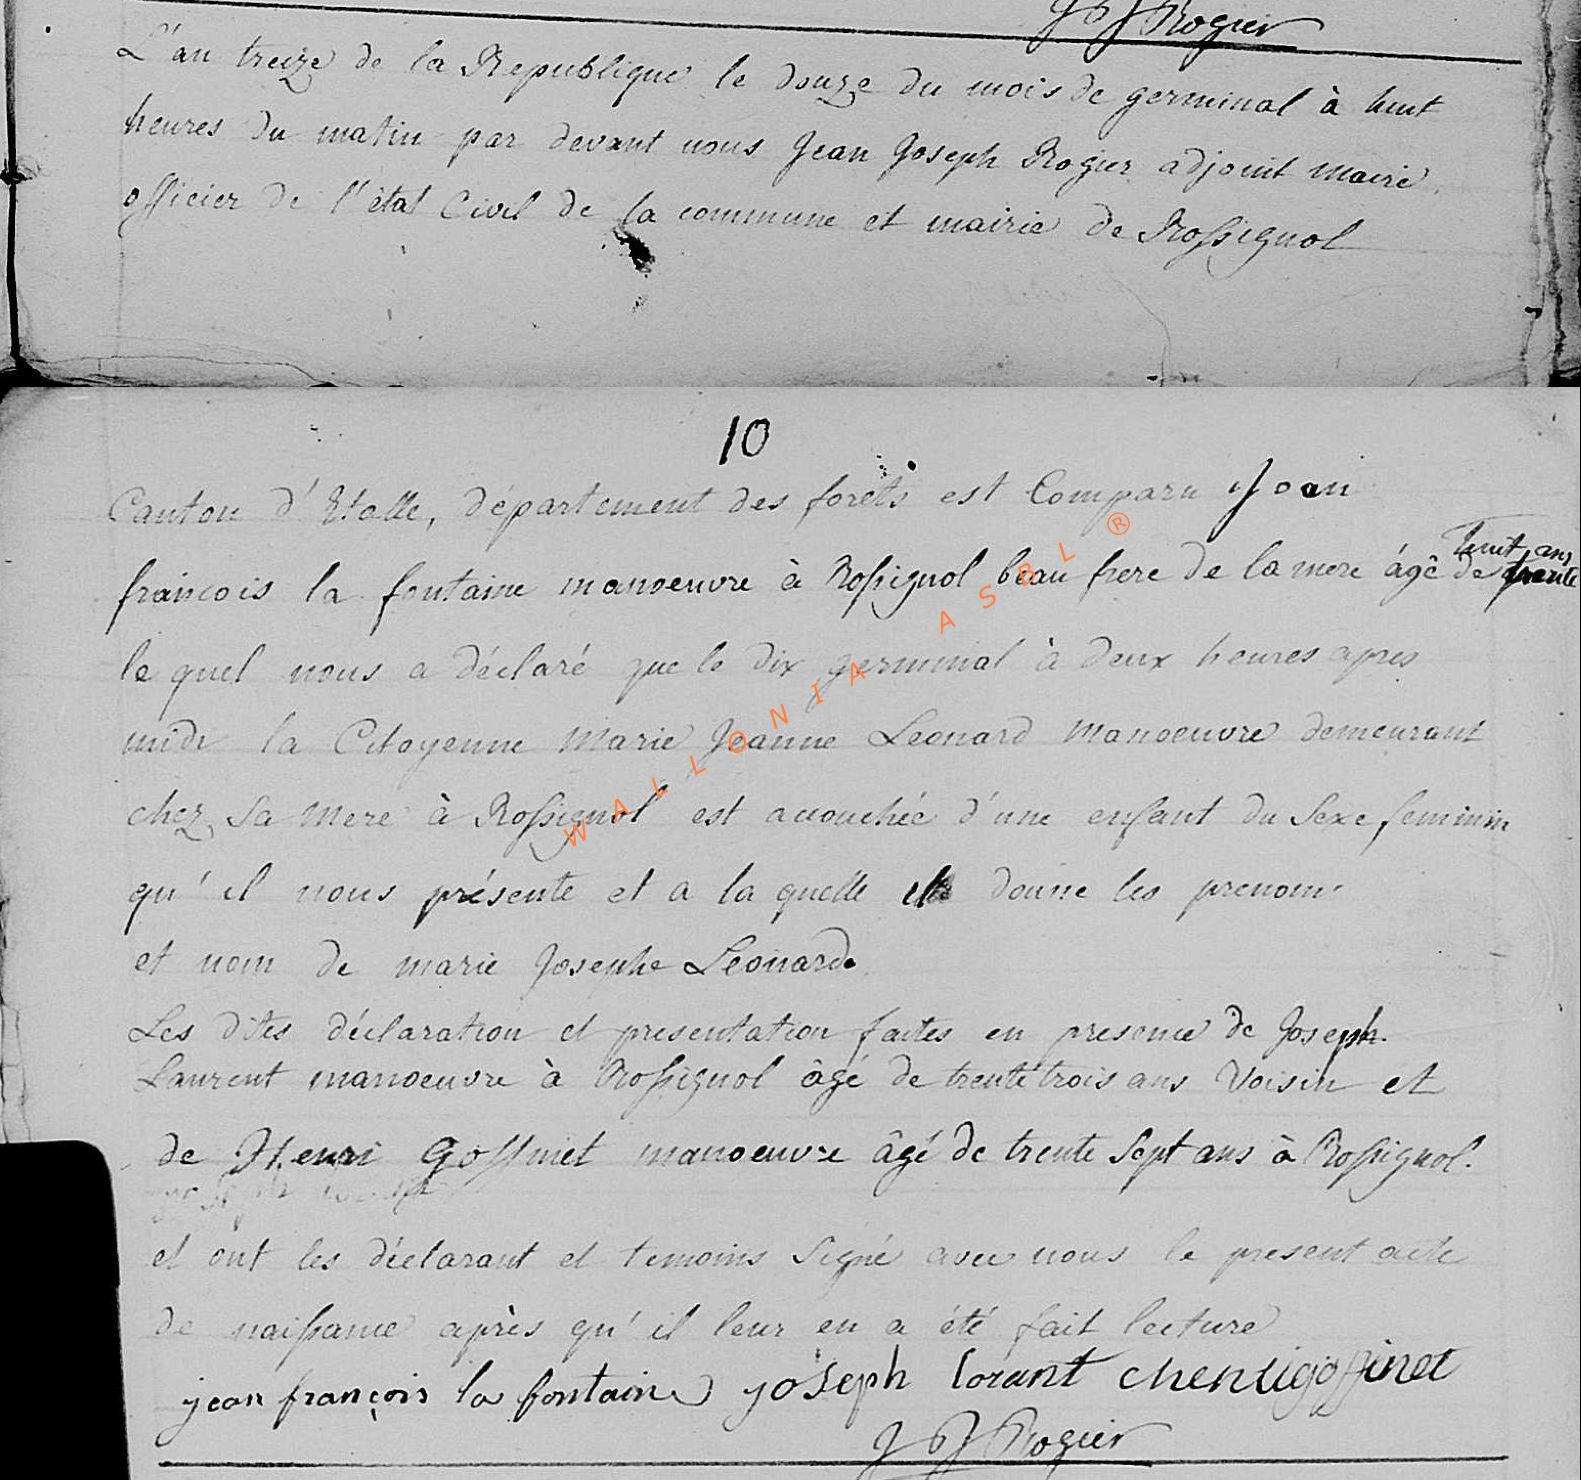 J J Rogier
L'an treize de la Republique le douze du mois de germinal à huit
heures du matin par devant nous Jean Joseph Rogier adjoint maire
officier de l'état Civil de la commune et mairie de Rossignol
10
Canton d'Etalle, département des forèts est Comparu Jean
francois la fontaine manoeuvre à Rossignol beau frere de la mere âgé de trente
huit ans
le quel nous a déclaré que le dix germinal à deux heures apres
midi la Citoyenne Marie Jeanne Leonard Manoeuvre demeurant
chez Sa Mere à Rossignol est accouchée d'une enfant du Sexe feminin
qu'il nous présente et a la quelle donne les prenoms
et nom de marie Josephe Leonard.
Les dites déclaration et presentation faites en presence de Joseph.
Laurent manoeuvre à Rossignol âgé de trente trois ans Voisin et
de Henri Goffinet manoeuvre âgé de trente Sept ans à Rossignol.
et ont les déclarant et temoins Signé avec nous le present acte
de naissance après qu'il leur en a été fait lecture
jean françois la fontaine joseph lorant chenrigoffinet
J J Rogier
WALLONIA ASBL ®